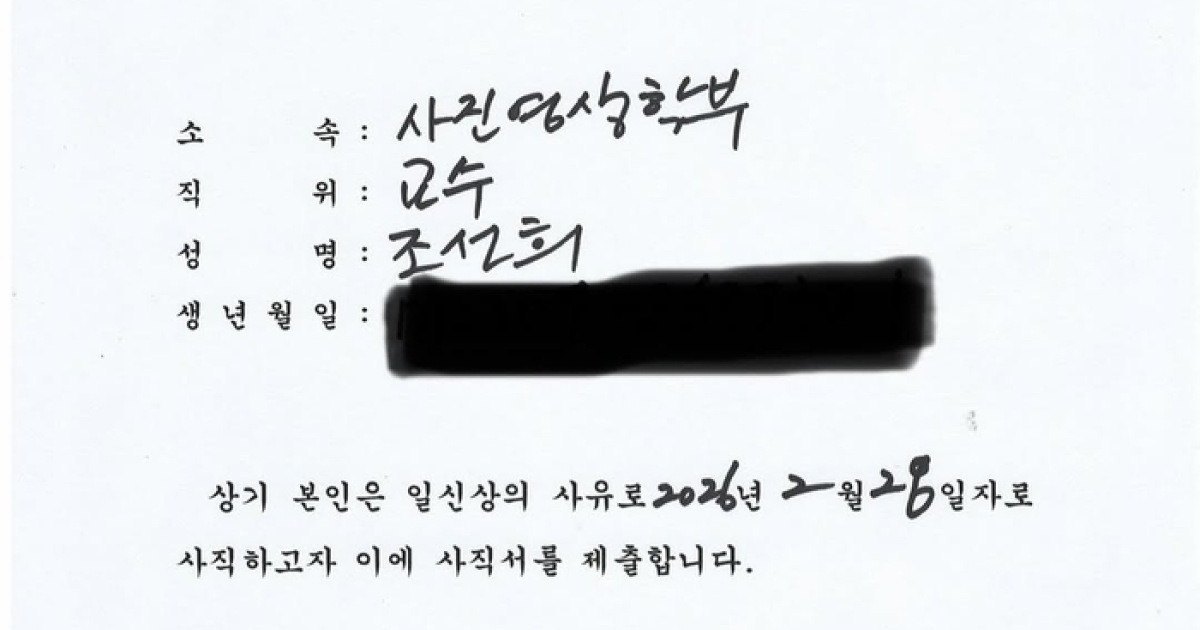 소 속 : 사진영상학부
직 위 : 교수
성 명 : 조선희
생 년 월 일 :
상기 본인은 일신상의 사유로 2026년 2월 28일자로
사직하고자 이에 사직서를 제출합니다.